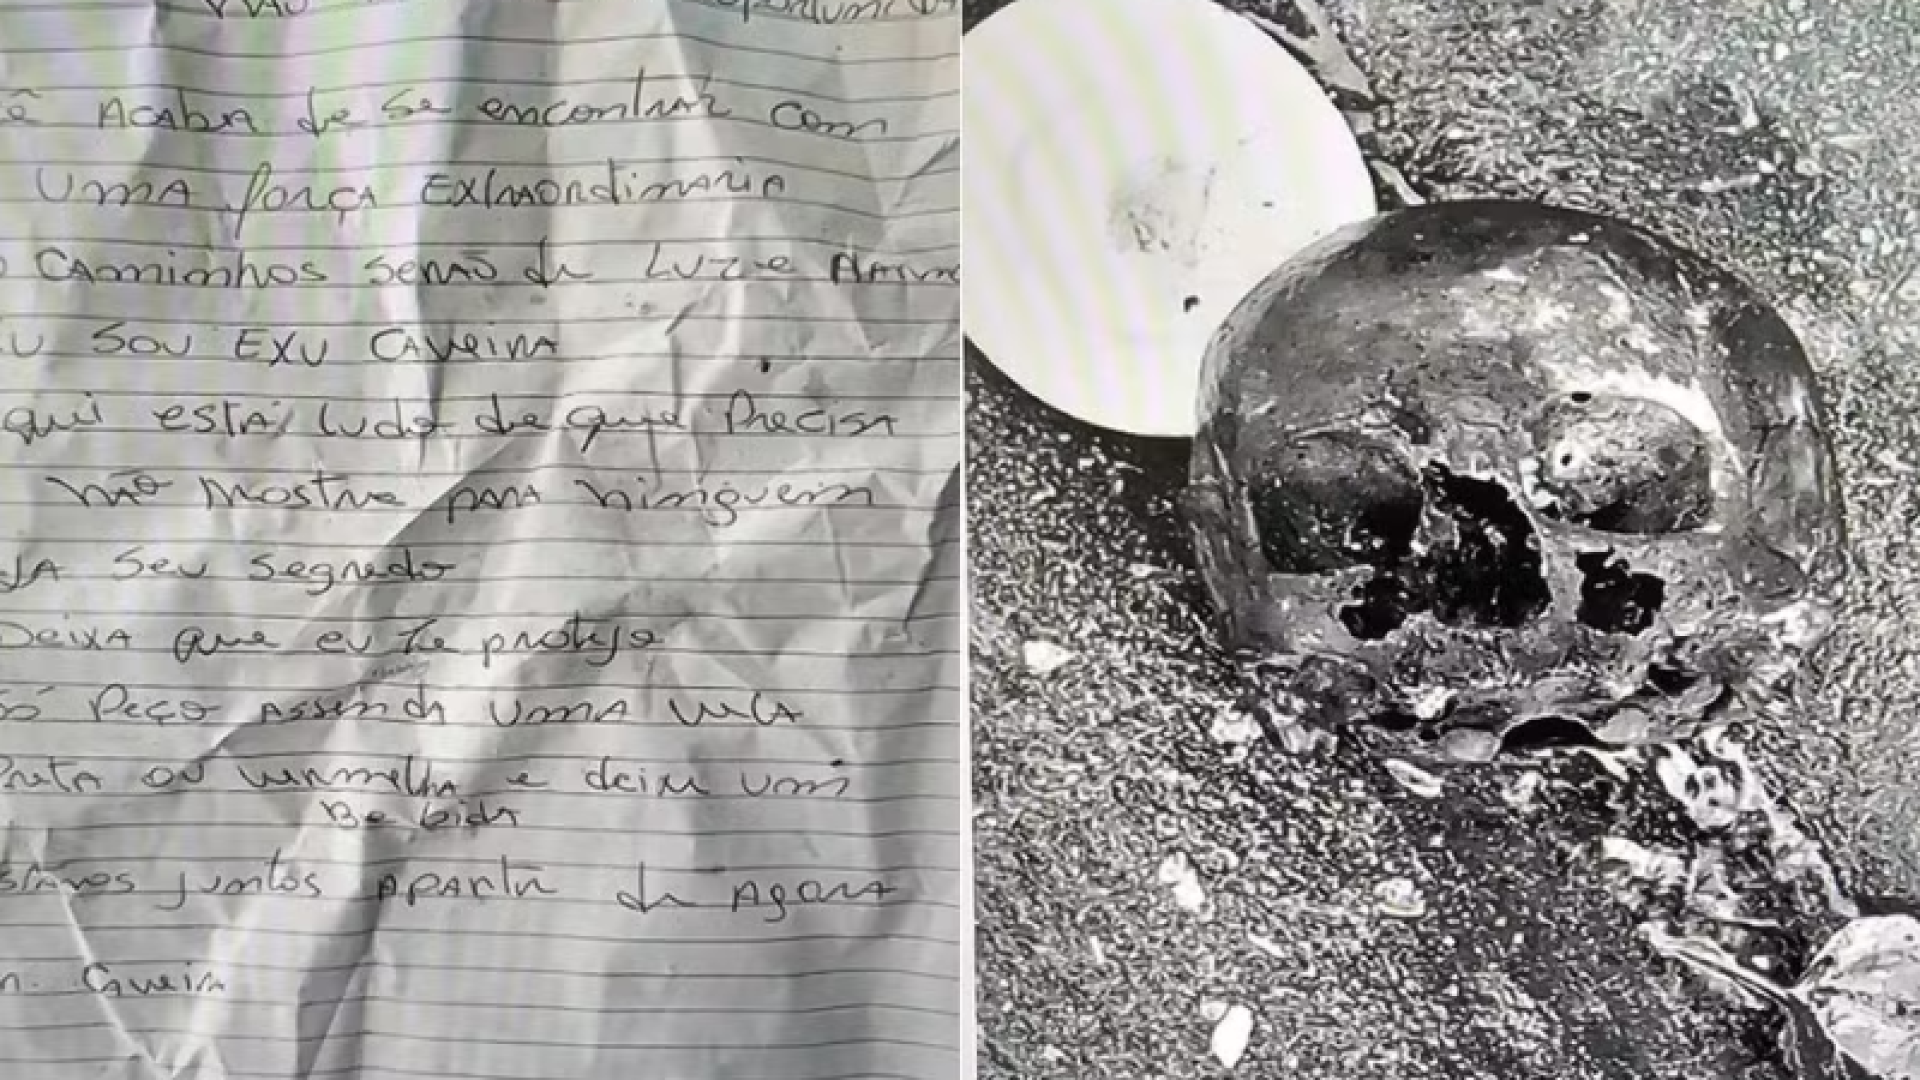 oportuni
ê Acaba de se encontrar com
uma força extraordinaria
o Caminhos serão de Luz e
EU SOU EXU CAVEIRA
qui está tudo de que Precisa
não mostre para ninguem
JA Seu Segredo
Deixa que eu te proteje
só Peço assenda uma vela
Preta ou vermelha e deixe um
Bebida
stamos juntos apartir de Agora
Caveira